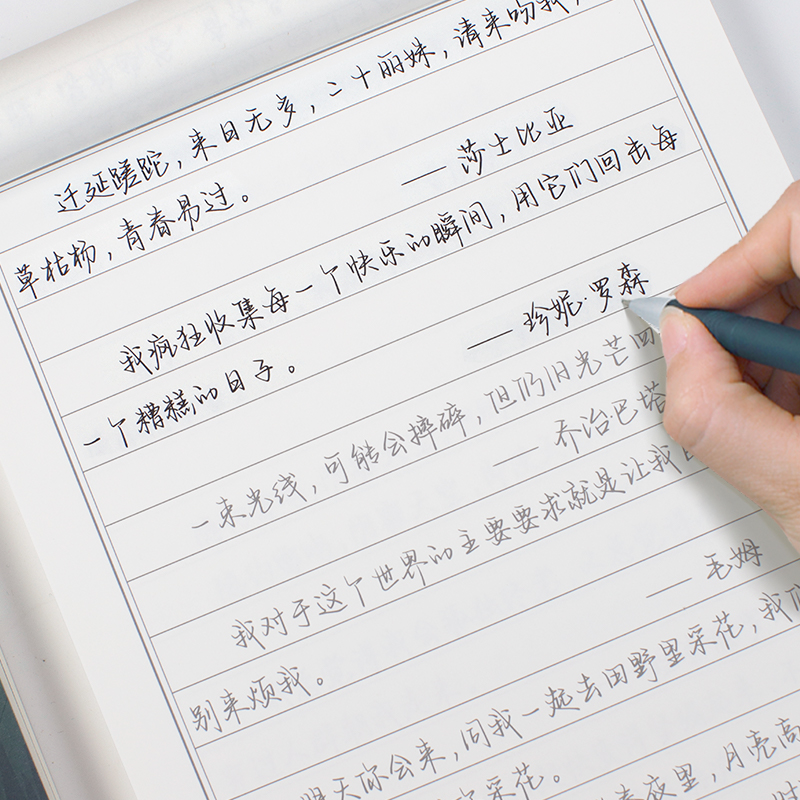 迁延蹉跎，来日无多，二十丽姝，请来吻我，
草枯杨，青春易过。 ——莎士比亚
我疯狂收集每一个快乐的瞬间，用它们回击每
一个糟糕的日子。 ——珍妮·罗森
一束光线，可能会摔碎，但仍旧光芒四
——乔治·巴塔
我对于这个世界的主要要求就是让我
别来烦我。 ——毛姆
明天你会来，问我一起去田野里采花，我们
采花。
春夜里，月亮高